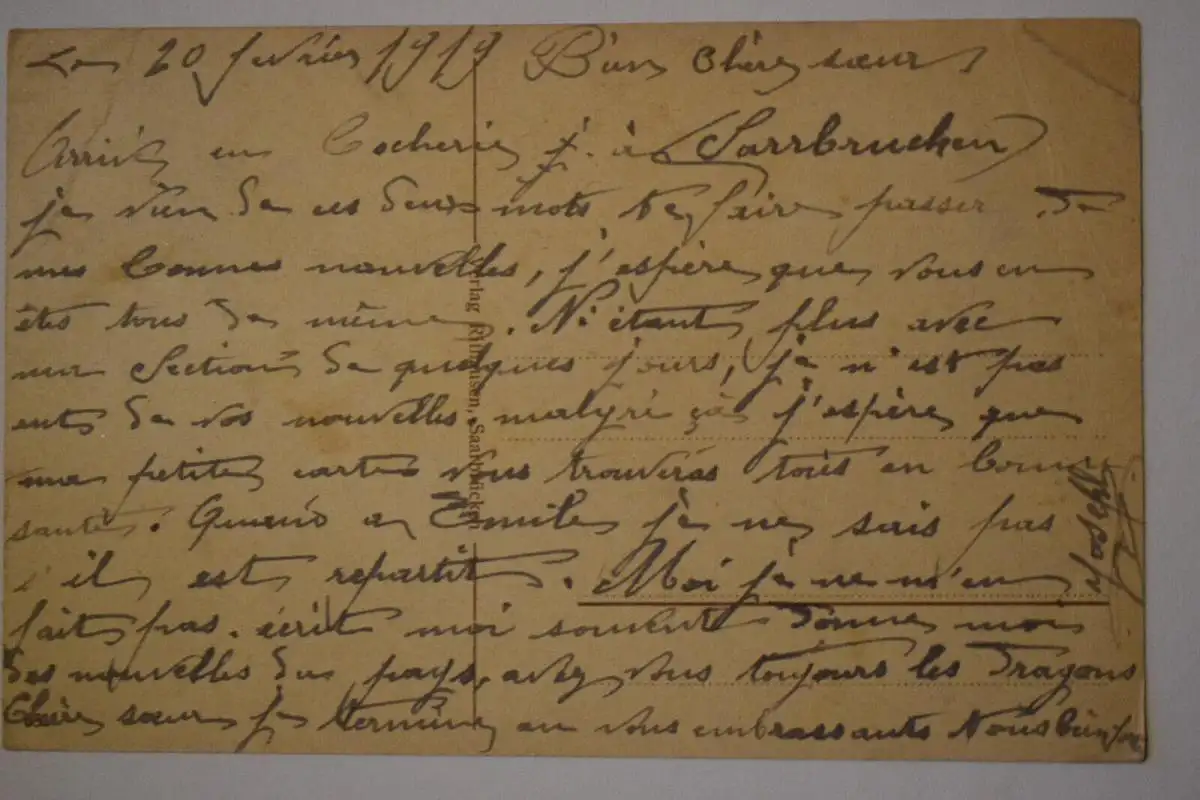 Le 20 fevrier 1919 Bien chère sœur
Arrivé en Bocherie à Sarrbrucken
je vien de ces deux mots te faire passer de
mes bonnes nouvelles, j'espère que vous en
êtes tous de même. N'étant plus avec
ma Section de quelques jours, je n'est pas
euts de vos nouvelles malgré çà j'espère que
ma petite carte vous trouveras tous en bonne
santé. Quand a Emile je ne sais pas
s'il est repartit. Moi je ne m'en
fait pas. écrit moi souvent donne moi
des nouvelles du pays, avez vous toujours les Dragons
Chère sœur je termine en vous embrassants tous bien fort
Joseph
Verlag Saarbrücken